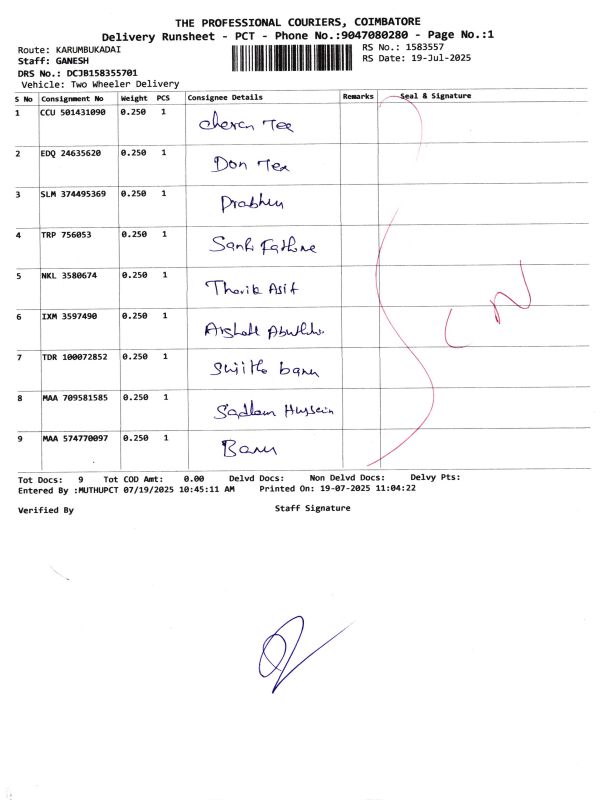 THE PROFESSIONAL COURIERS, COIMBATORE
Delivery Runsheet - PCT - Phone No.:9047080280 - Page No.:1
Route: KARUMBUKADAI RS No.: 1583557
Staff: GANESH RS Date: 19-Jul-2025
DRS No.: DCJB158355701
Vehicle: Two Wheeler Delivery
S No Consignment No Weight PCS Consignee Details Remarks Seal & Signature
1 CCU 501431090 0.250 1 Cheran Tex
2 EDQ 24635620 0.250 1 Don Tex
3 SLM 374495369 0.250 1 Prabhu
4 TRP 756053 0.250 1
5 NKL 3580674 0.250 1 Asif
6 IXM 3597490 0.250 1
7 TDR 100072852 0.250 1 banu
8 MAA 709581585 0.250 1 Saddam Hussein
9 MAA 574770097 0.250 1 Banu
Tot Docs: 9 Tot COD Amt: 0.00 Delvd Docs: Non Delvd Docs: Delvy Pts:
Entered By :MUTHUPCT 07/19/2025 10:45:11 AM Printed On: 19-07-2025 11:04:22
Verified By Staff Signature